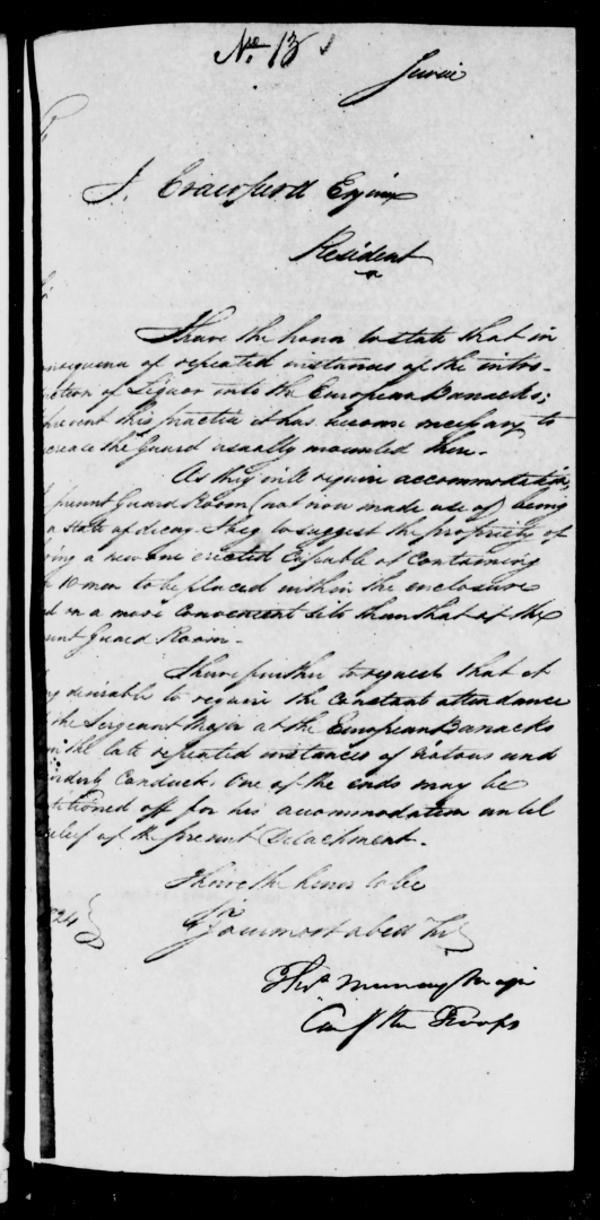 No. 13
J. Crawfurd Esquire
Resident
I have the honor to state that in
of repeated instances of the intro-
uction of Liquor into the European Barracks;
prevent this practice it has become necessary to
crease the Guard usually mounted there.
As they will require accommodation,
present Guard Room (not now made use of) being
a state of decay. I beg to suggest the propriety of
ving a new one erected Capable of Containing
10 men to be placed within the enclosure
d on a more Convenient Site than that of the
sent Guard Room.
I have further to request that it
ng desirable to require the Constant attendance
the Sergeant Major at the European Barracks
the late repeated instances of riotous and
orderly Conduct. One of the ends may be
titioned off for his accommodation until
relief of the present Detachment.
I have the honor to be
Sir
Your most obed
824
Thos. Murray Major
Troops